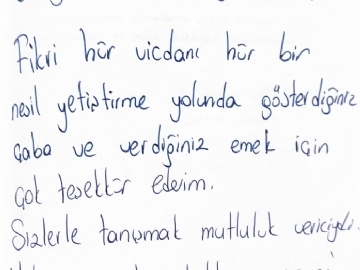 Fikri hür vicdanı hür bir
nesil yetiştirme yolunda gösterdiğiniz
çaba ve verdiğiniz emek için
çok teşekkür ederim.
Sizlerle tanışmak mutluluk vericiydi.